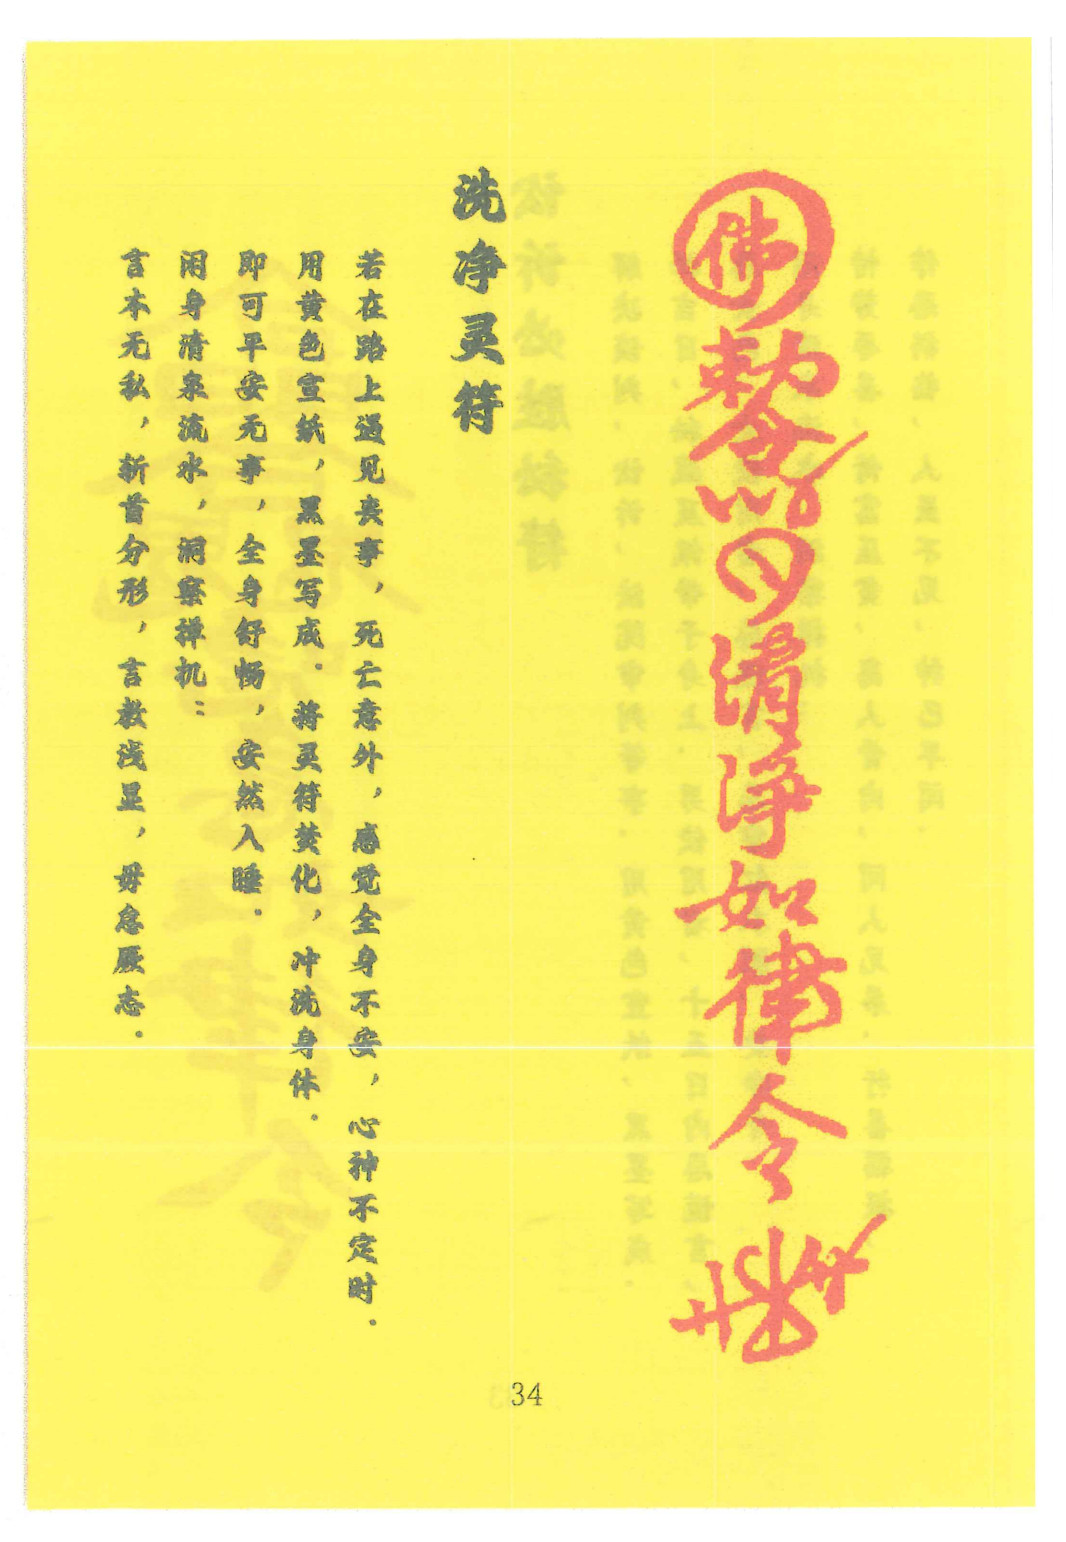 佛
敕令
日月清净如律令
洗净灵符
若在路上遇见丧事，死亡意外，感觉全身不安，心神不定时．
用黄色宣纸，黑墨写成．将灵符焚化，冲洗身体．
即可平安无事，全身舒畅，安然入睡．
闲身清泉流水，洞察禅机：
言本无私，斩首分形，言教浅显，毋怠厥志．
34